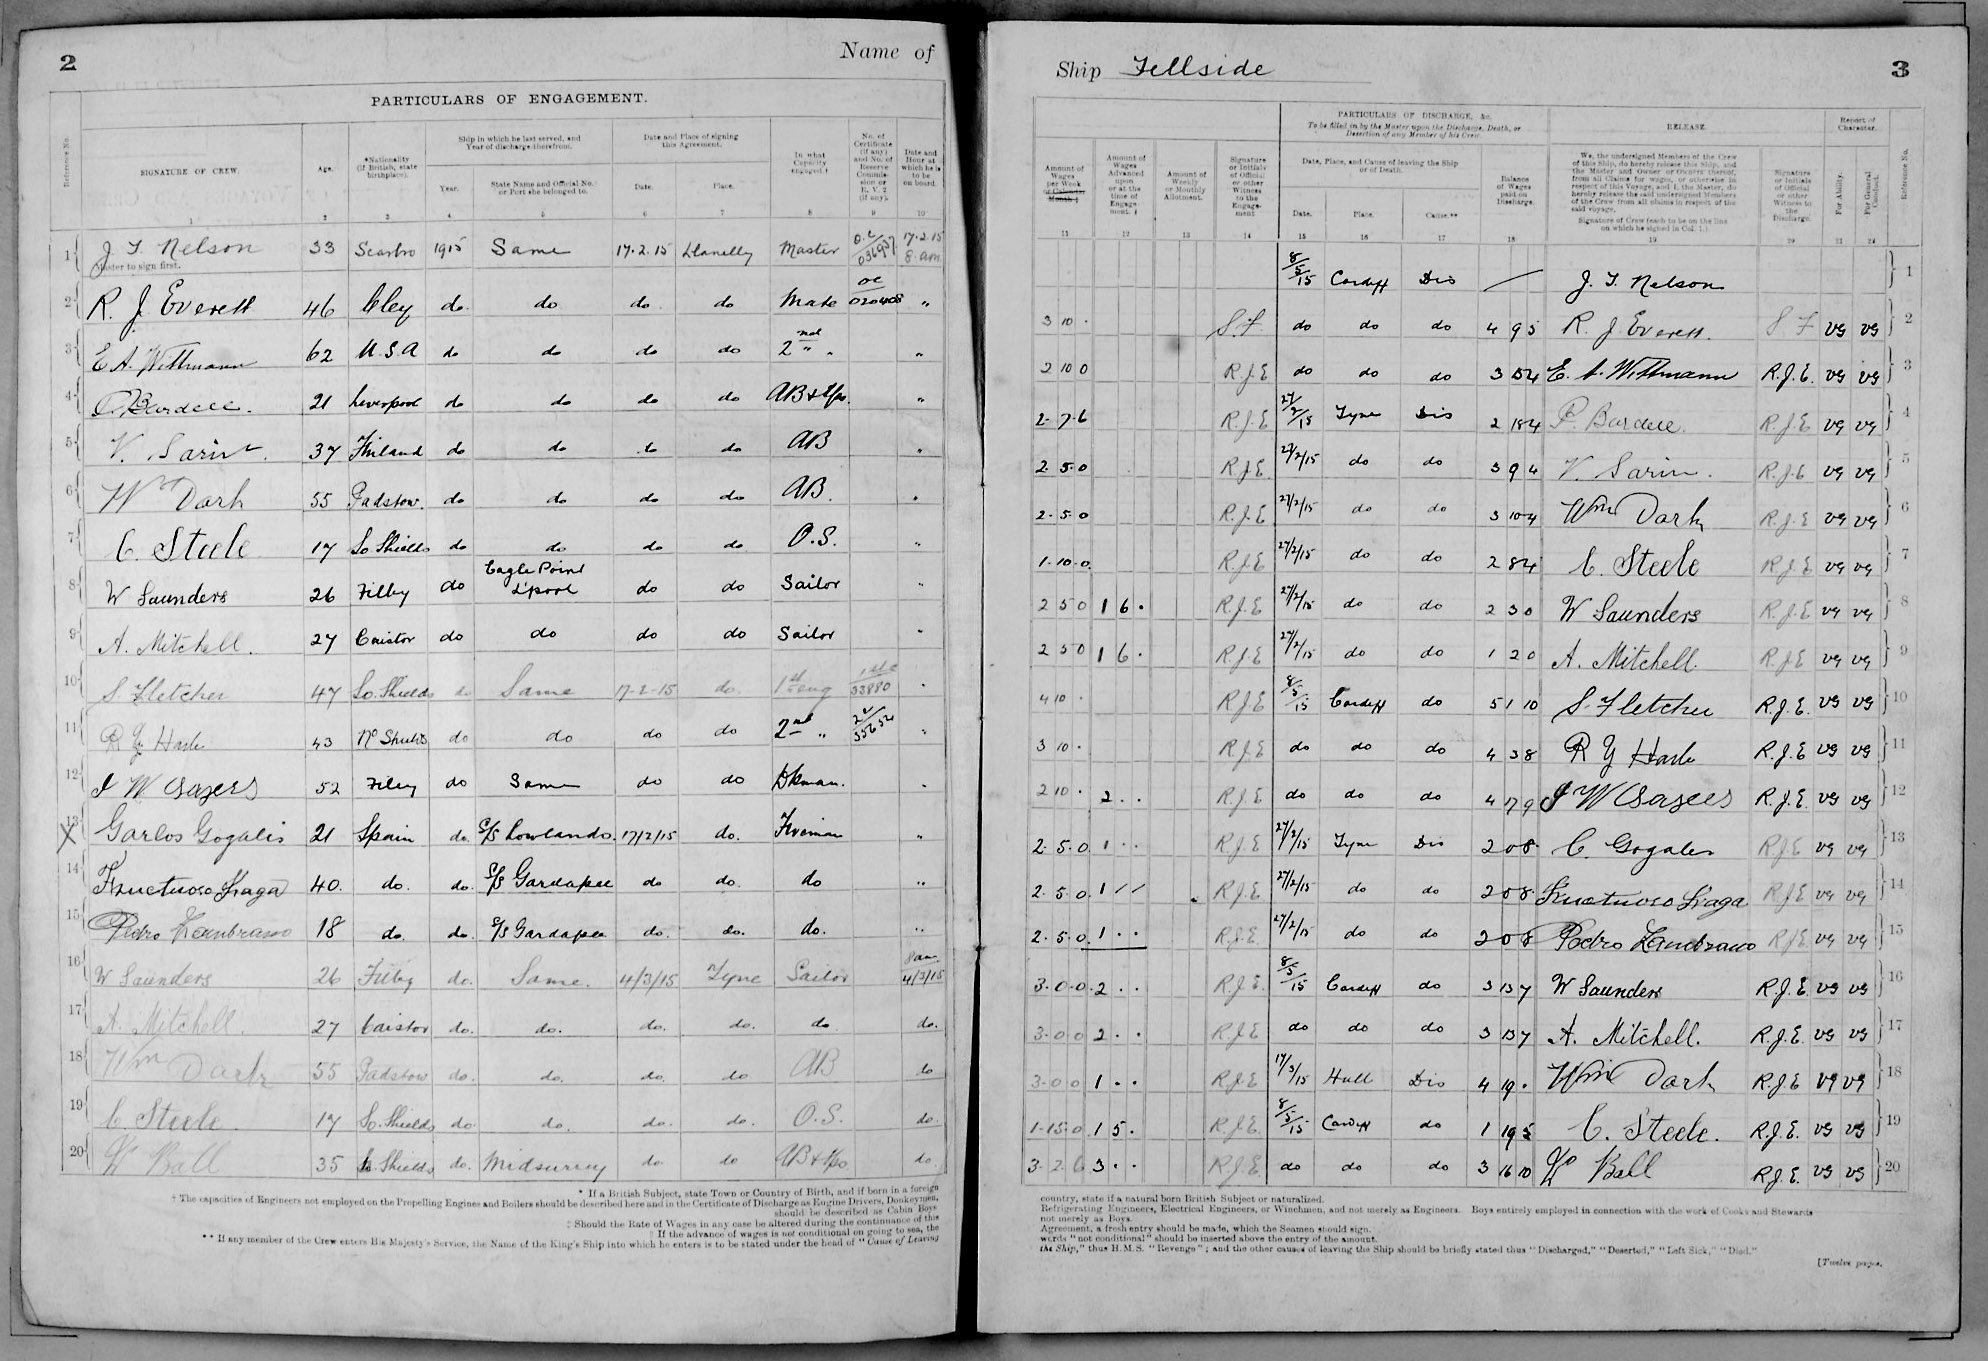 2
Name of
PARTICULARS OF ENGAGEMENT.
Reference No.
SIGNATURE OF CREW.
Age.
*Nationality (If British, state birthplace).
Ship in which he last served, and Year of discharge therefrom.
Year.
State Name and Official No. or Port she belonged to.
Date and Place of signing this Agreement.
Date.
Place.
In what Capacity engaged.†
No. of Certificate (if any) and No. of Reserve Commission or R. V. 2 (if any).
Date and Hour at which he is to be on board.
1 2 3 4 5 6 7 8 9 10
1 J. T. Nelson 33 Scarbro 1915 Same 17.2.15 Llanelly Master O.C 036937 17.2.15 8 am
Master to sign first.
2 R. J. Everett 46 Cley do do do do Mate OC 020408 "
3 E A. Wittmann 62 U.S.A do do do do 2nd " "
4 P Bardell. 21 Liverpool do do do do AB & Lps. "
5 V. Sarin 37 Finland do do do do AB "
6 Wm Dark 55 Padstow. do do do do AB. "
7 C. Steele 17 So Shields do do do do O.S. "
8 W Saunders 26 Filby do Eagle Point L'pool do do Sailor "
9 A. Mitchell. 27 Caistor do do do do Sailor "
10 S. Fletcher 47 So. Shields do Same 17-2-15 do. 1st eng 1st C 33880 "
11 R Y Harle 43 No Shields do do do do 2nd " 2C 35652 "
12 J W 52 Filey do Same do do Dkman. "
13 X Garlos Gogalis 21 Spain do. S/S Lowlands. 17/2/15 do. Fireman "
14 Fructuoso Fraga 40. do. do. S/S Gardapee do do. do "
15 Pedro Zambrano 18 do. do. S/S Gardapee do. do. do. "
16 W Saunders 26 Filby do. Same. 4/3/15 Tyne Sailor 8 am 4/3/15
17 A. Mitchell. 27 Caistor do. do. do. do. do do.
18 Wm Dark 55 Padstow do. do. do. do AB do
19 C. Steele 17 So. Shields do. do. do. do. O.S. do.
20 W Ball 35 So Shields do. Midsurrey do. do AB & Lps do.
* If a British Subject, state Town or Country of Birth, and if born in a foreign
† The capacities of Engineers not employed on the Propelling Engines and Boilers should be described here and in the Certificate of Discharge as Engine Drivers, Donkeymen,
should be described as Cabin Boys
‡ Should the Rate of Wages in any case be altered during the continuance of this
|| If the advance of wages is not conditional on going to sea, the
** If any member of the Crew enters His Majesty's Service, the Name of the King's Ship into which he enters is to be stated under the head of "Cause of Leaving
Ship Fellside
3
Amount of Wages per Week or Calendar Month.‡
Amount of Wages Advanced upon or at the time of Engagement.||
Amount of Weekly or Monthly Allotment.
Signature or Initials of Official or other Witness to the Engagement
PARTICULARS OF DISCHARGE, &c.
To be filled in by the Master upon the Discharge, Death, or Desertion of any Member of his Crew.
Date, Place, and Cause of leaving the Ship or of Death.
Date.
Place.
Cause.**
Balance of Wages paid on Discharge.
RELEASE.
We, the undersigned Members of the Crew of this Ship, do hereby release this Ship, and the Master and Owner or Owners thereof, from all Claims for wages, or otherwise in respect of this Voyage; and I, the Master, do hereby release the said undersigned Members of the Crew from all claims in respect of the said voyage.
Signature of Crew (each to be on the line on which he signed in Col. 1.)
Signature or Initials of Official or other Witness to the Discharge.
Report of Character.
For Ability.
For General Conduct.
Reference No.
11 12 13 14 15 16 17 18 19 20 21 22
8/5/15 Cardiff Dis — J. T. Nelson 1
3 10 . S.F. do do do 4 9 5 R. J. Everett. S F VG VG 2
2 10 0 R.J.E do do do 3 5 4 E. A. Wittmann R.J.E. VG VG 3
2-7-6 R.J.E 27/2/15 Tyne Dis 2 18 4 P. Bardell. R.J.E VG VG 4
2.5.0 R.J.E. 27/2/15 do do 3 9 4 V. Sarin. R.J.E VG VG 5
2-5-0 R.J.E. 27/2/15 do do 3 10 4 Wm Dark R.J.E VG VG 6
1-10-0. R.J.E 27/2/15 do do 2 8 4 C. Steele R.J.E VG VG 7
2 5 0 1 6 . R.J.E 27/2/15 do do 2 3 0 W Saunders R.J.E VG VG 8
2 5 0 1 6 . R.J.E 27/2/15 do do 1 2 0 A. Mitchell. R.J.E VG VG 9
4 10 . R.J.E 8/5/15 Cardiff do 5 1 10 S. Fletcher R.J.E. VG VG 10
3 10 . R.J.E do do do 4 3 8 R Y Harle R.J.E VG VG 11
2 10 . 2 . . R.J.E do do do 4 17 9 J W R.J.E. VG VG 12
2.5.0. 1 . . R.J.E 27/2/15 Tyne Dis 2 0 8 C. Gogales R.J.E VG VG 13
2.5.0. 1 / / R.J.E. 27/2/15 do do 2 0 8 Fructuoso Fraga R.J.E VG VG 14
2.5.0. 1 . . R.J.E. 27/2/15 do do 2 0 8 Pedro Zambrano R.J.E VG VG 15
3-0-0. 2 . . R.J.E. 8/5/15 Cardiff do 3 13 7 W Saunders R.J.E. VG VG 16
3-0 0 2 . . R.J.E do do do 3 13 7 A. Mitchell. R.J.E. VG VG 17
3-0 0 1 . . R.J.E 17/3/15 Hull Dis 4 19 . Wm Dark R.J.E VG VG 18
1-15-0 1 5 . R.J.E. 8/5/15 Cardiff do 1 19 5 C. Steele. R.J.E. VG VG 19
3-2 6 3 . . R.J.E. do do do 3 16 10 W Ball R.J.E. VG VG 20
country, state if a natural born British Subject or naturalized.
Refrigerating Engineers, Electrical Engineers, or Winchmen, and not merely as Engineers. Boys entirely employed in connection with the work of Cooks and Stewards
not merely as Boys.
Agreement, a fresh entry should be made, which the Seamen should sign.
words "not conditional" should be inserted above the entry of the amount.
the Ship," thus H.M.S. "Revenge"; and the other causes of leaving the Ship should be briefly stated thus "Discharged," "Deserted," "Left Sick," "Died."
[Twelve pages.